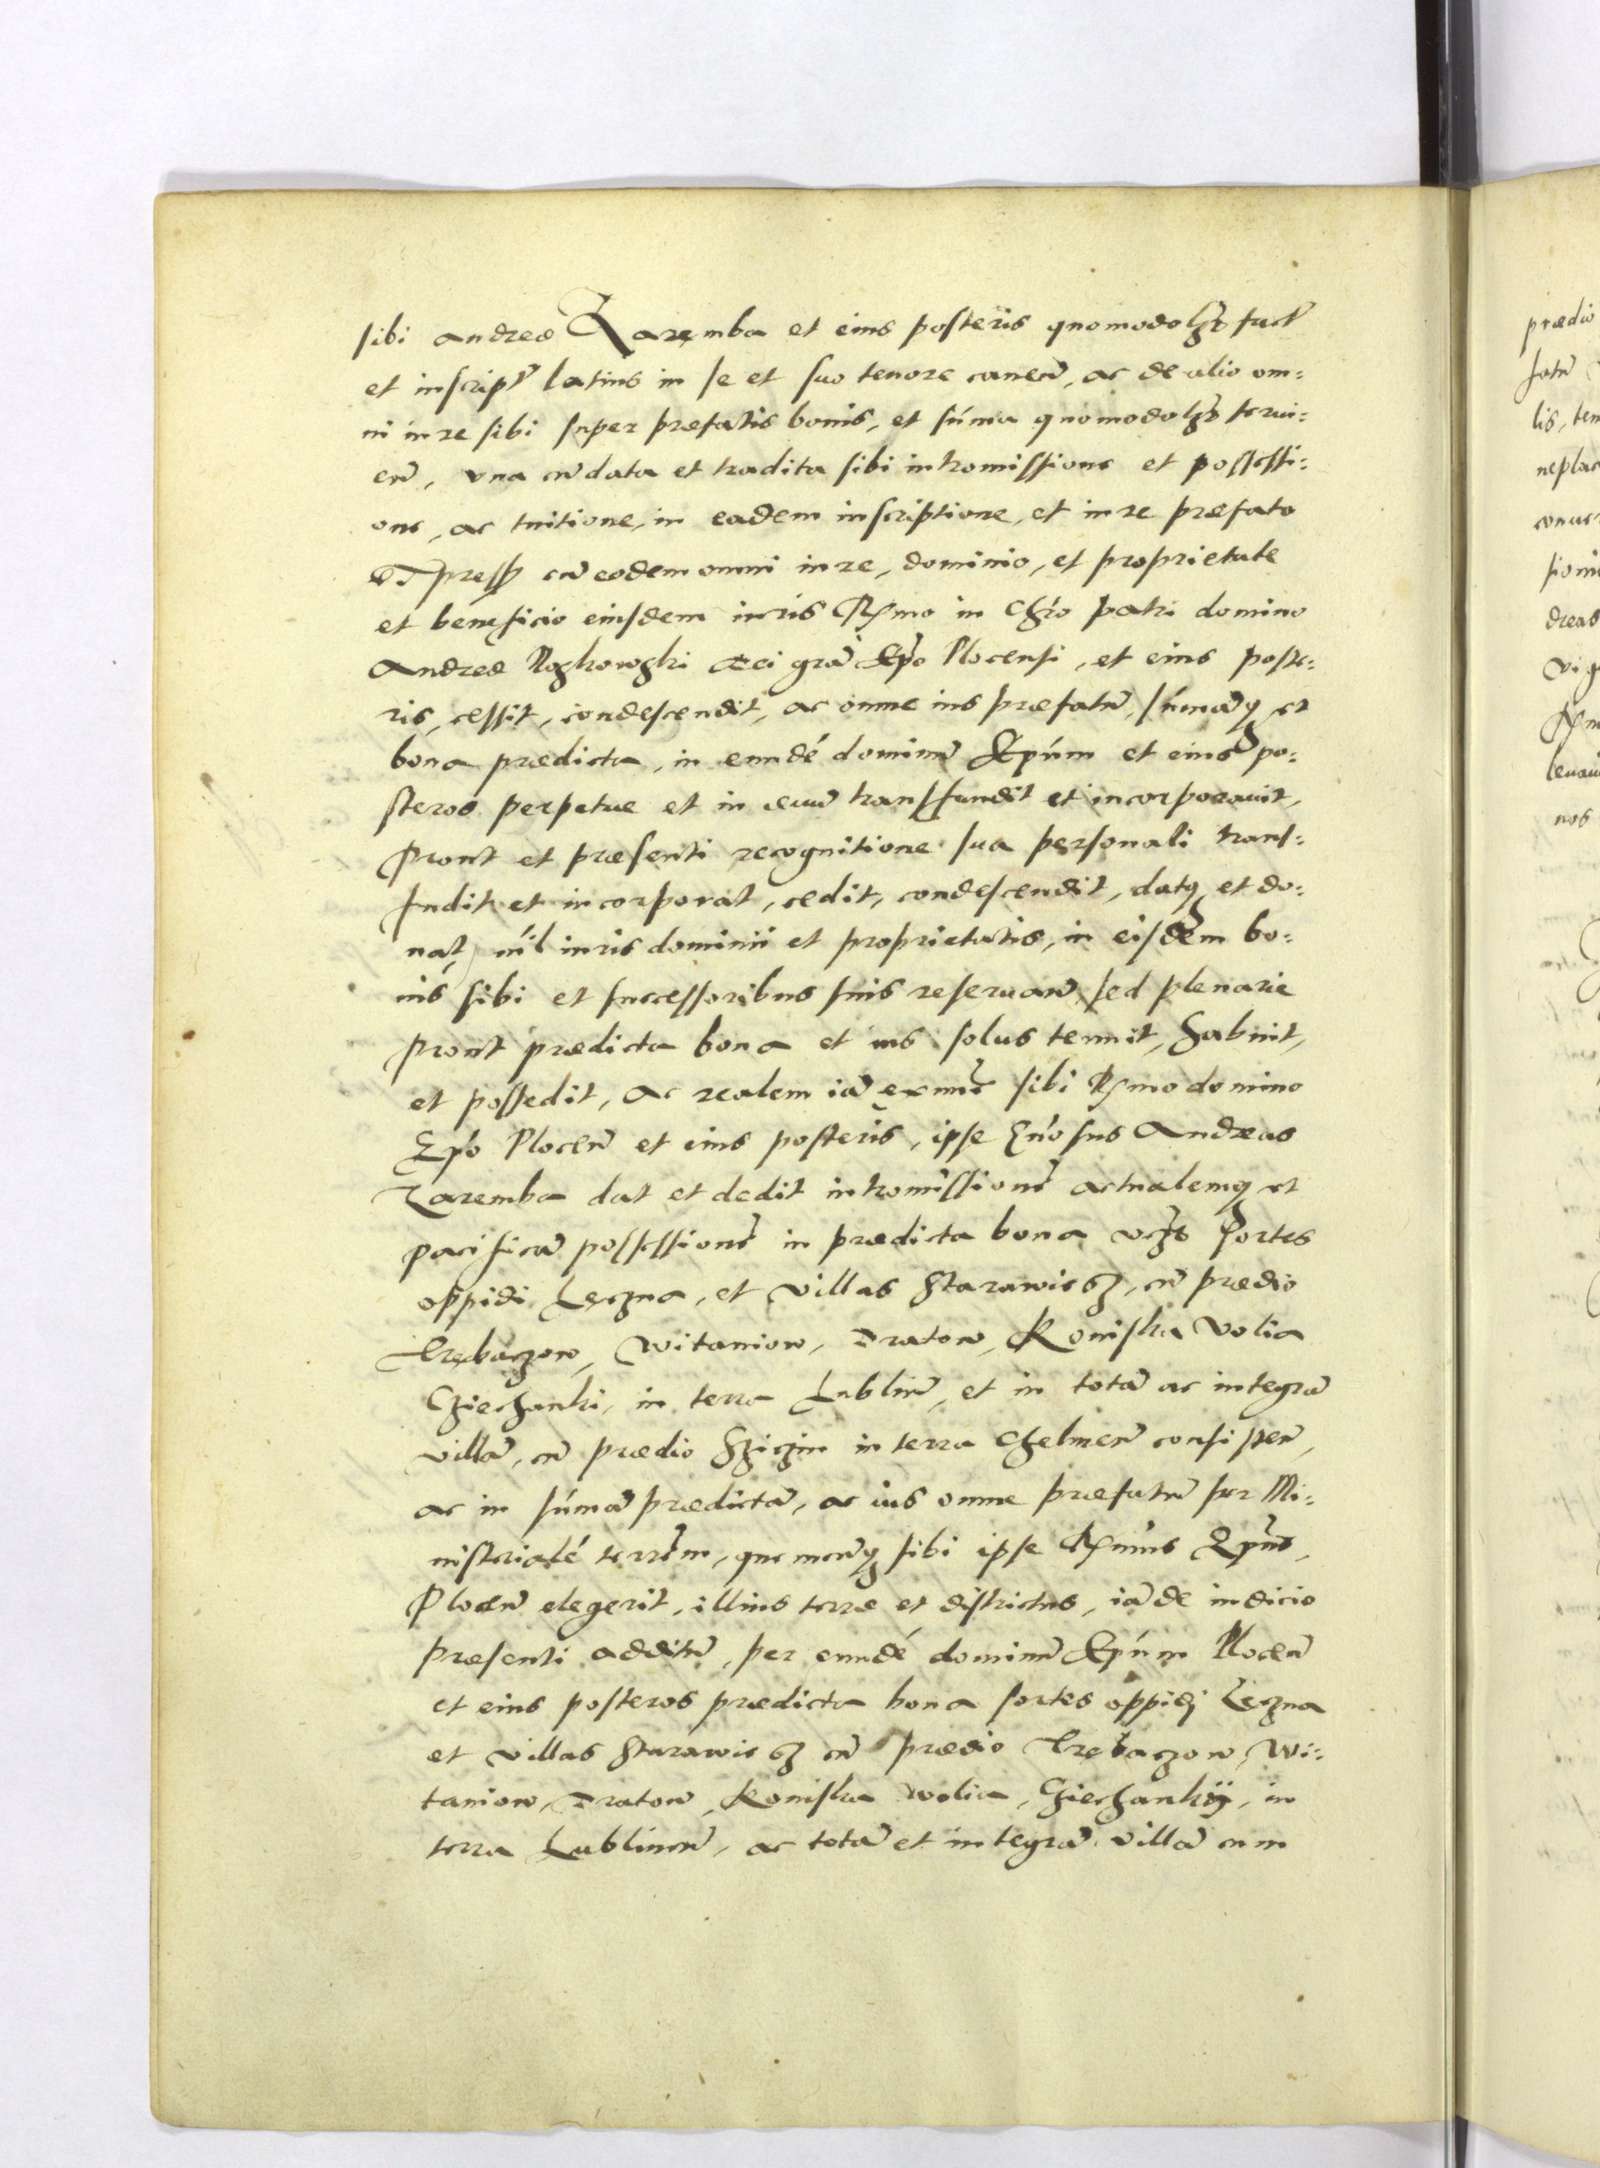 sibi Andreæ Zaremba et eius posteris quomodolꝫt fact̃
et inscript̃ latius in se et suo tenore canen̄, ac de alio om:
ni iure sibi super præfatis bonis, et sum̄a quomodolꝫt serui:
en̄, vna cū data et tradita sibi intromissione et possessi:
one, ac tuitione, in eadem inscriptione, et iure præfato
expresß cū eodem omni iure, dominio, et proprietate
et beneficio eiusdem iuris Rx̄mo in Chr̄o patri domino
Andreæ Noskowski Dei grā Ep̄o Plocensi, et eius poste:
ris, cessit, condescendit, ac omne ius præfatū, sum̄āqꝫ et
bona prædicta, in eundē dominū Ep̄um et eius po:
steros perpetue et in æuū transfundit et incorporauit,
Prout et præsenti recognitione sua personali trans:
fundit et incorporat, cedit, condescendit, datqꝫ et do:
nat, nīl iuris dominii et proprietatis, in eisdem bo:
nis sibi et successoribus suis reseruan̄, sed plenarie
prout prædicta bona et ius solus tenuit, habuit,
et possedit, ac realem iā ex nūc sibi Rx̄mo domino
Ep̄o Plocen̄ et eius posteris, ipse Gn̄osus Andreas
Zaremba dat et dedit intromissionē actualemqꝫ et
pacificā possessionē in prædicta bona vꝫt Sortes
oppidi Lęczna, et villas Starawiesz, cū prædio
Trębaczow, Witaniow, Dratow, Koniska Volia
Cziechanki, in terra Lublin̄, et in totā ac integrā
villā, cū prædio Syczin in terra Chelmen̄ consisten̄,
ac in sum̄ā prædictā, ac ius omne præfatū per Mi:
nisterialē terr̄em, quemcūqꝫ sibi ipse Rx̄mus Ep̄us,
Plocen̄ elegerit, illius terræ et districtus, iā de iudicio
præsenti additū, per eundē dominū Ep̄um Plocen̄
et eius posteros prædicta bona sortes oppidi Lęczna
et villas Starawiesz cū prædio Trębaczow, Wi:
taniow, Dratow, Koniska wolia, Cziechankÿ, in
terra Lublinen̄, ac totā et integrā villā cum